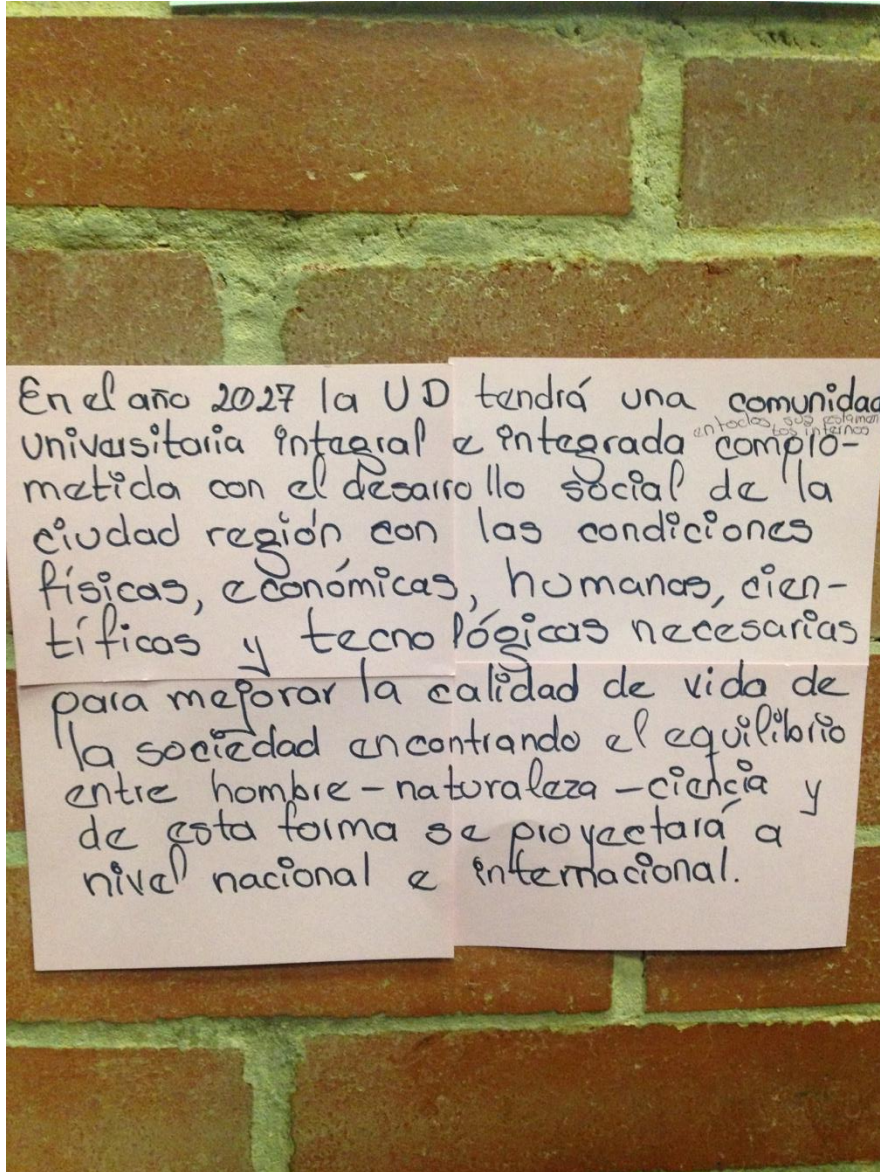 En el año 2027 la UD tendrá una comunidad
en todos sus estamen
tos internos
universitaria integral e integrada compro-
metida con el desarrollo social de la
ciudad región con las condiciones
físicas, económicas, humanas, cien-
tíficas y tecnológicas necesarias
para mejorar la calidad de vida de
la sociedad encontrando el equilibrio
entre hombre - naturaleza - ciencia y
de esta forma se proyectará a
nivel nacional e internacional.